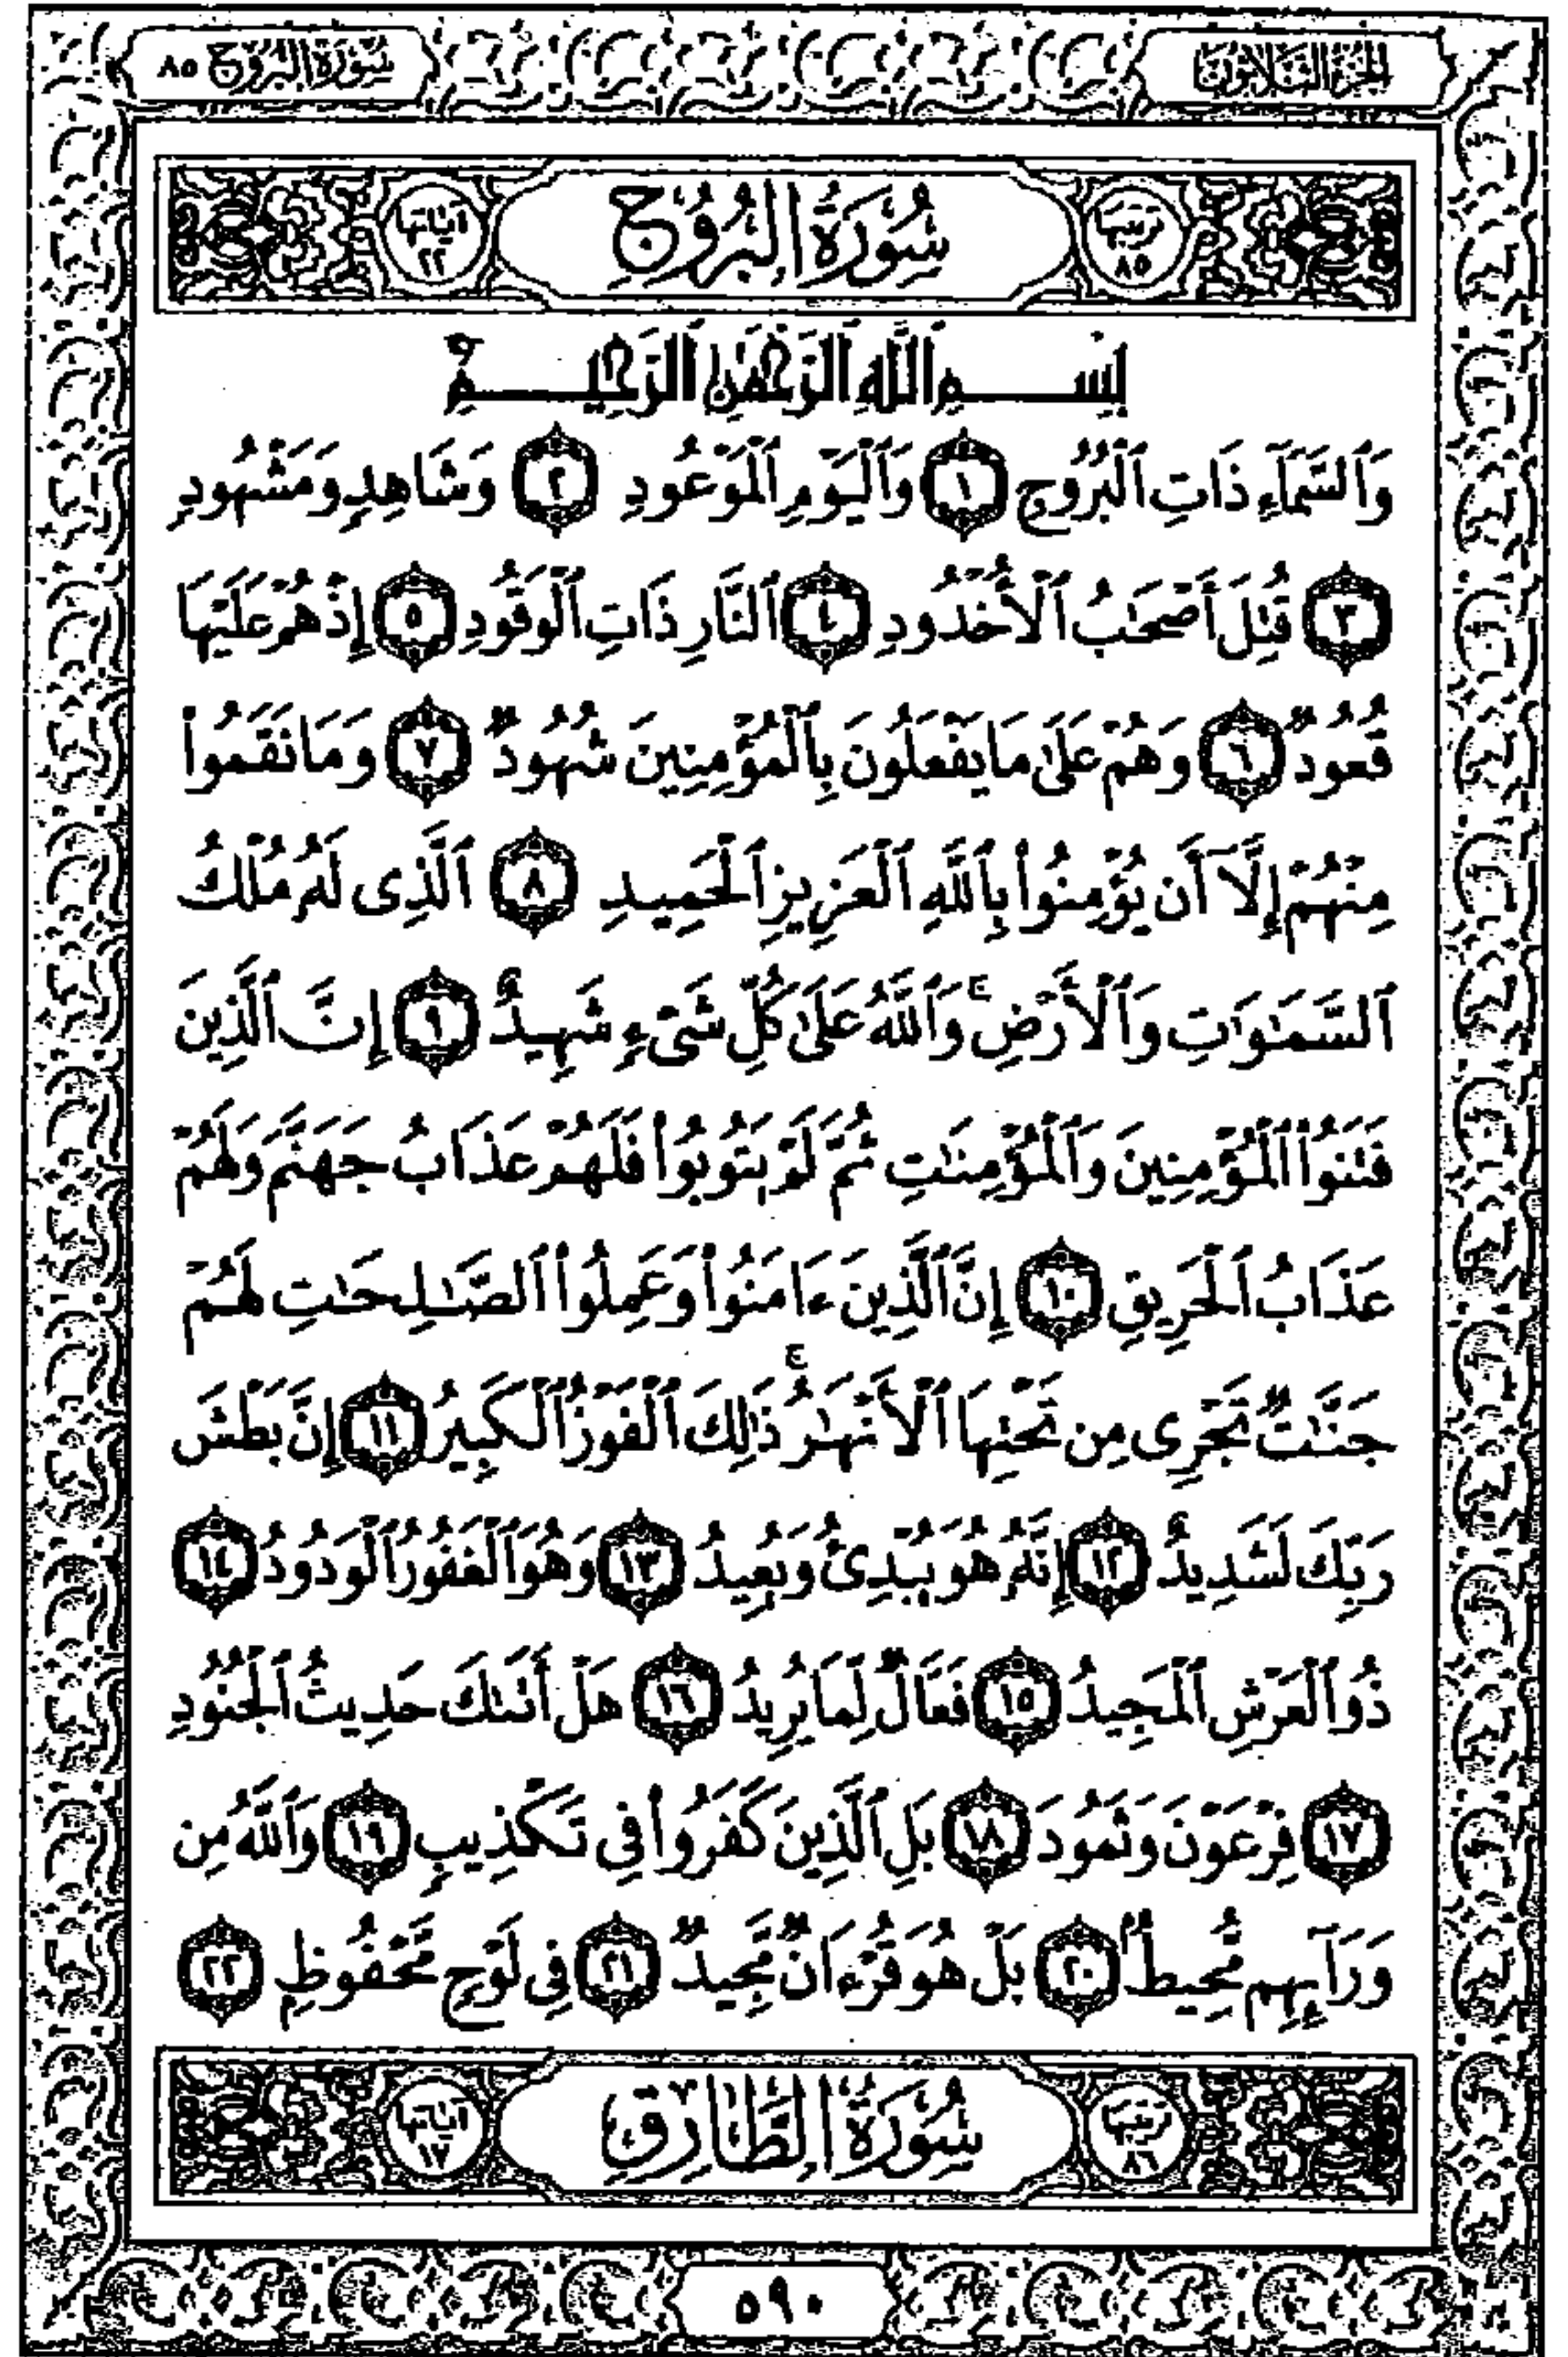 الجزء الثلاثون
سورة البروج ٨٥
ترتيبها ٨٥
سُورَةُ البُرُوجِ
آياتها ٢٢
بِسْمِ ٱللَّهِ ٱلرَّحْمَٰنِ ٱلرَّحِيمِ
وَٱلسَّمَآءِ ذَاتِ ٱلْبُرُوجِ ١ وَٱلْيَوْمِ ٱلْمَوْعُودِ ٢ وَشَاهِدٍ وَمَشْهُودٍ
٣ قُتِلَ أَصْحَٰبُ ٱلْأُخْدُودِ ٤ ٱلنَّارِ ذَاتِ ٱلْوَقُودِ ٥ إِذْ هُمْ عَلَيْهَا
قُعُودٌ ٦ وَهُمْ عَلَىٰ مَا يَفْعَلُونَ بِٱلْمُؤْمِنِينَ شُهُودٌ ٧ وَمَا نَقَمُوا۟
مِنْهُمْ إِلَّآ أَن يُؤْمِنُوا۟ بِٱللَّهِ ٱلْعَزِيزِ ٱلْحَمِيدِ ٨ ٱلَّذِى لَهُۥ مُلْكُ
ٱلسَّمَٰوَٰتِ وَٱلْأَرْضِ ۚ وَٱللَّهُ عَلَىٰ كُلِّ شَىْءٍ شَهِيدٌ ٩ إِنَّ ٱلَّذِينَ
فَتَنُوا۟ ٱلْمُؤْمِنِينَ وَٱلْمُؤْمِنَٰتِ ثُمَّ لَمْ يَتُوبُوا۟ فَلَهُمْ عَذَابُ جَهَنَّمَ وَلَهُمْ
عَذَابُ ٱلْحَرِيقِ ١٠ إِنَّ ٱلَّذِينَ ءَامَنُوا۟ وَعَمِلُوا۟ ٱلصَّٰلِحَٰتِ لَهُمْ
جَنَّٰتٌ تَجْرِى مِن تَحْتِهَا ٱلْأَنْهَٰرُ ۚ ذَٰلِكَ ٱلْفَوْزُ ٱلْكَبِيرُ ١١ إِنَّ بَطْشَ
رَبِّكَ لَشَدِيدٌ ١٢ إِنَّهُۥ هُوَ يُبْدِئُ وَيُعِيدُ ١٣ وَهُوَ ٱلْغَفُورُ ٱلْوَدُودُ ١٤
ذُو ٱلْعَرْشِ ٱلْمَجِيدُ ١٥ فَعَّالٌ لِّمَا يُرِيدُ ١٦ هَلْ أَتَىٰكَ حَدِيثُ ٱلْجُنُودِ
١٧ فِرْعَوْنَ وَثَمُودَ ١٨ بَلِ ٱلَّذِينَ كَفَرُوا۟ فِى تَكْذِيبٍ ١٩ وَٱللَّهُ مِن
وَرَآئِهِم مُّحِيطٌ ٢٠ بَلْ هُوَ قُرْءَانٌ مَّجِيدٌ ٢١ فِى لَوْحٍ مَّحْفُوظٍ ٢٢
ترتيبها ٨٦
سُورَةُ الطَّارِقِ
آياتها ١٧
٥٩٠